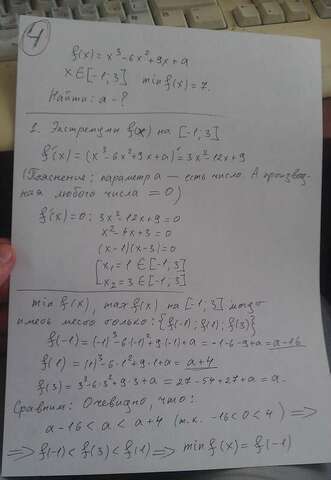 4
f(x) = x³-6x²+9x+a
x∈[-1;3] min f(x) = 7.
Найти: a - ?
1. Экстремумы f(x) на [-1;3]
f'(x) = (x³-6x²+9x+a)' = 3x²-12x+9
(Пояснение: параметр a — есть число. А производ-
ная любого числа = 0)
f'(x)=0: 3x²-12x+9=0
x²-4x+3=0
(x-1)(x-3)=0
[x₁=1 ∈ [-1;3]
[x₂=3 ∈ [-1;3]
min f(x), max f(x) на [-1;3] могут
иметь место только: {f(-1); f(1); f(3)}
f(-1) = (-1)³-6(-1)²+9(-1)+a = -1-6-9+a = a-16
f(1) = (1)³-6·1²+9·1+a = a+4
f(3) = 3³-6·3²+9·3+a = 27-54+27+a = a.
Сравним: Очевидно, что:
a-16 < a < a+4 (т.к. -16<0<4) ⟹
⟹ f(-1) < f(3) < f(1) ⟹ min f(x) = f(-1)